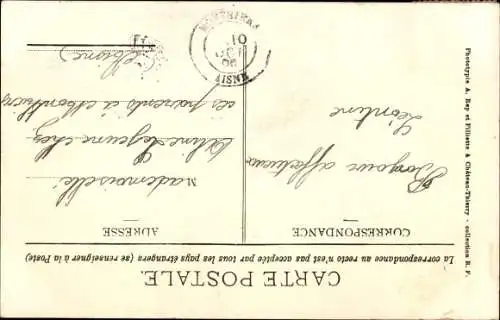 CARTE POSTALE.
La correspondance au recto n'est pas acceptée par tous les pays étrangers (se renseigner à la Poste)
CORRESPONDANCE
ADRESSE
Bonjour affectueux
Léontine
Mademoiselle
Lejeune chez
ses parents à Monthiers
(Aisne)
MONTHIERS
10
OCT
06
AISNE
Phototypie A. Rep et Filliette à Château-Thierry - collection R. F.